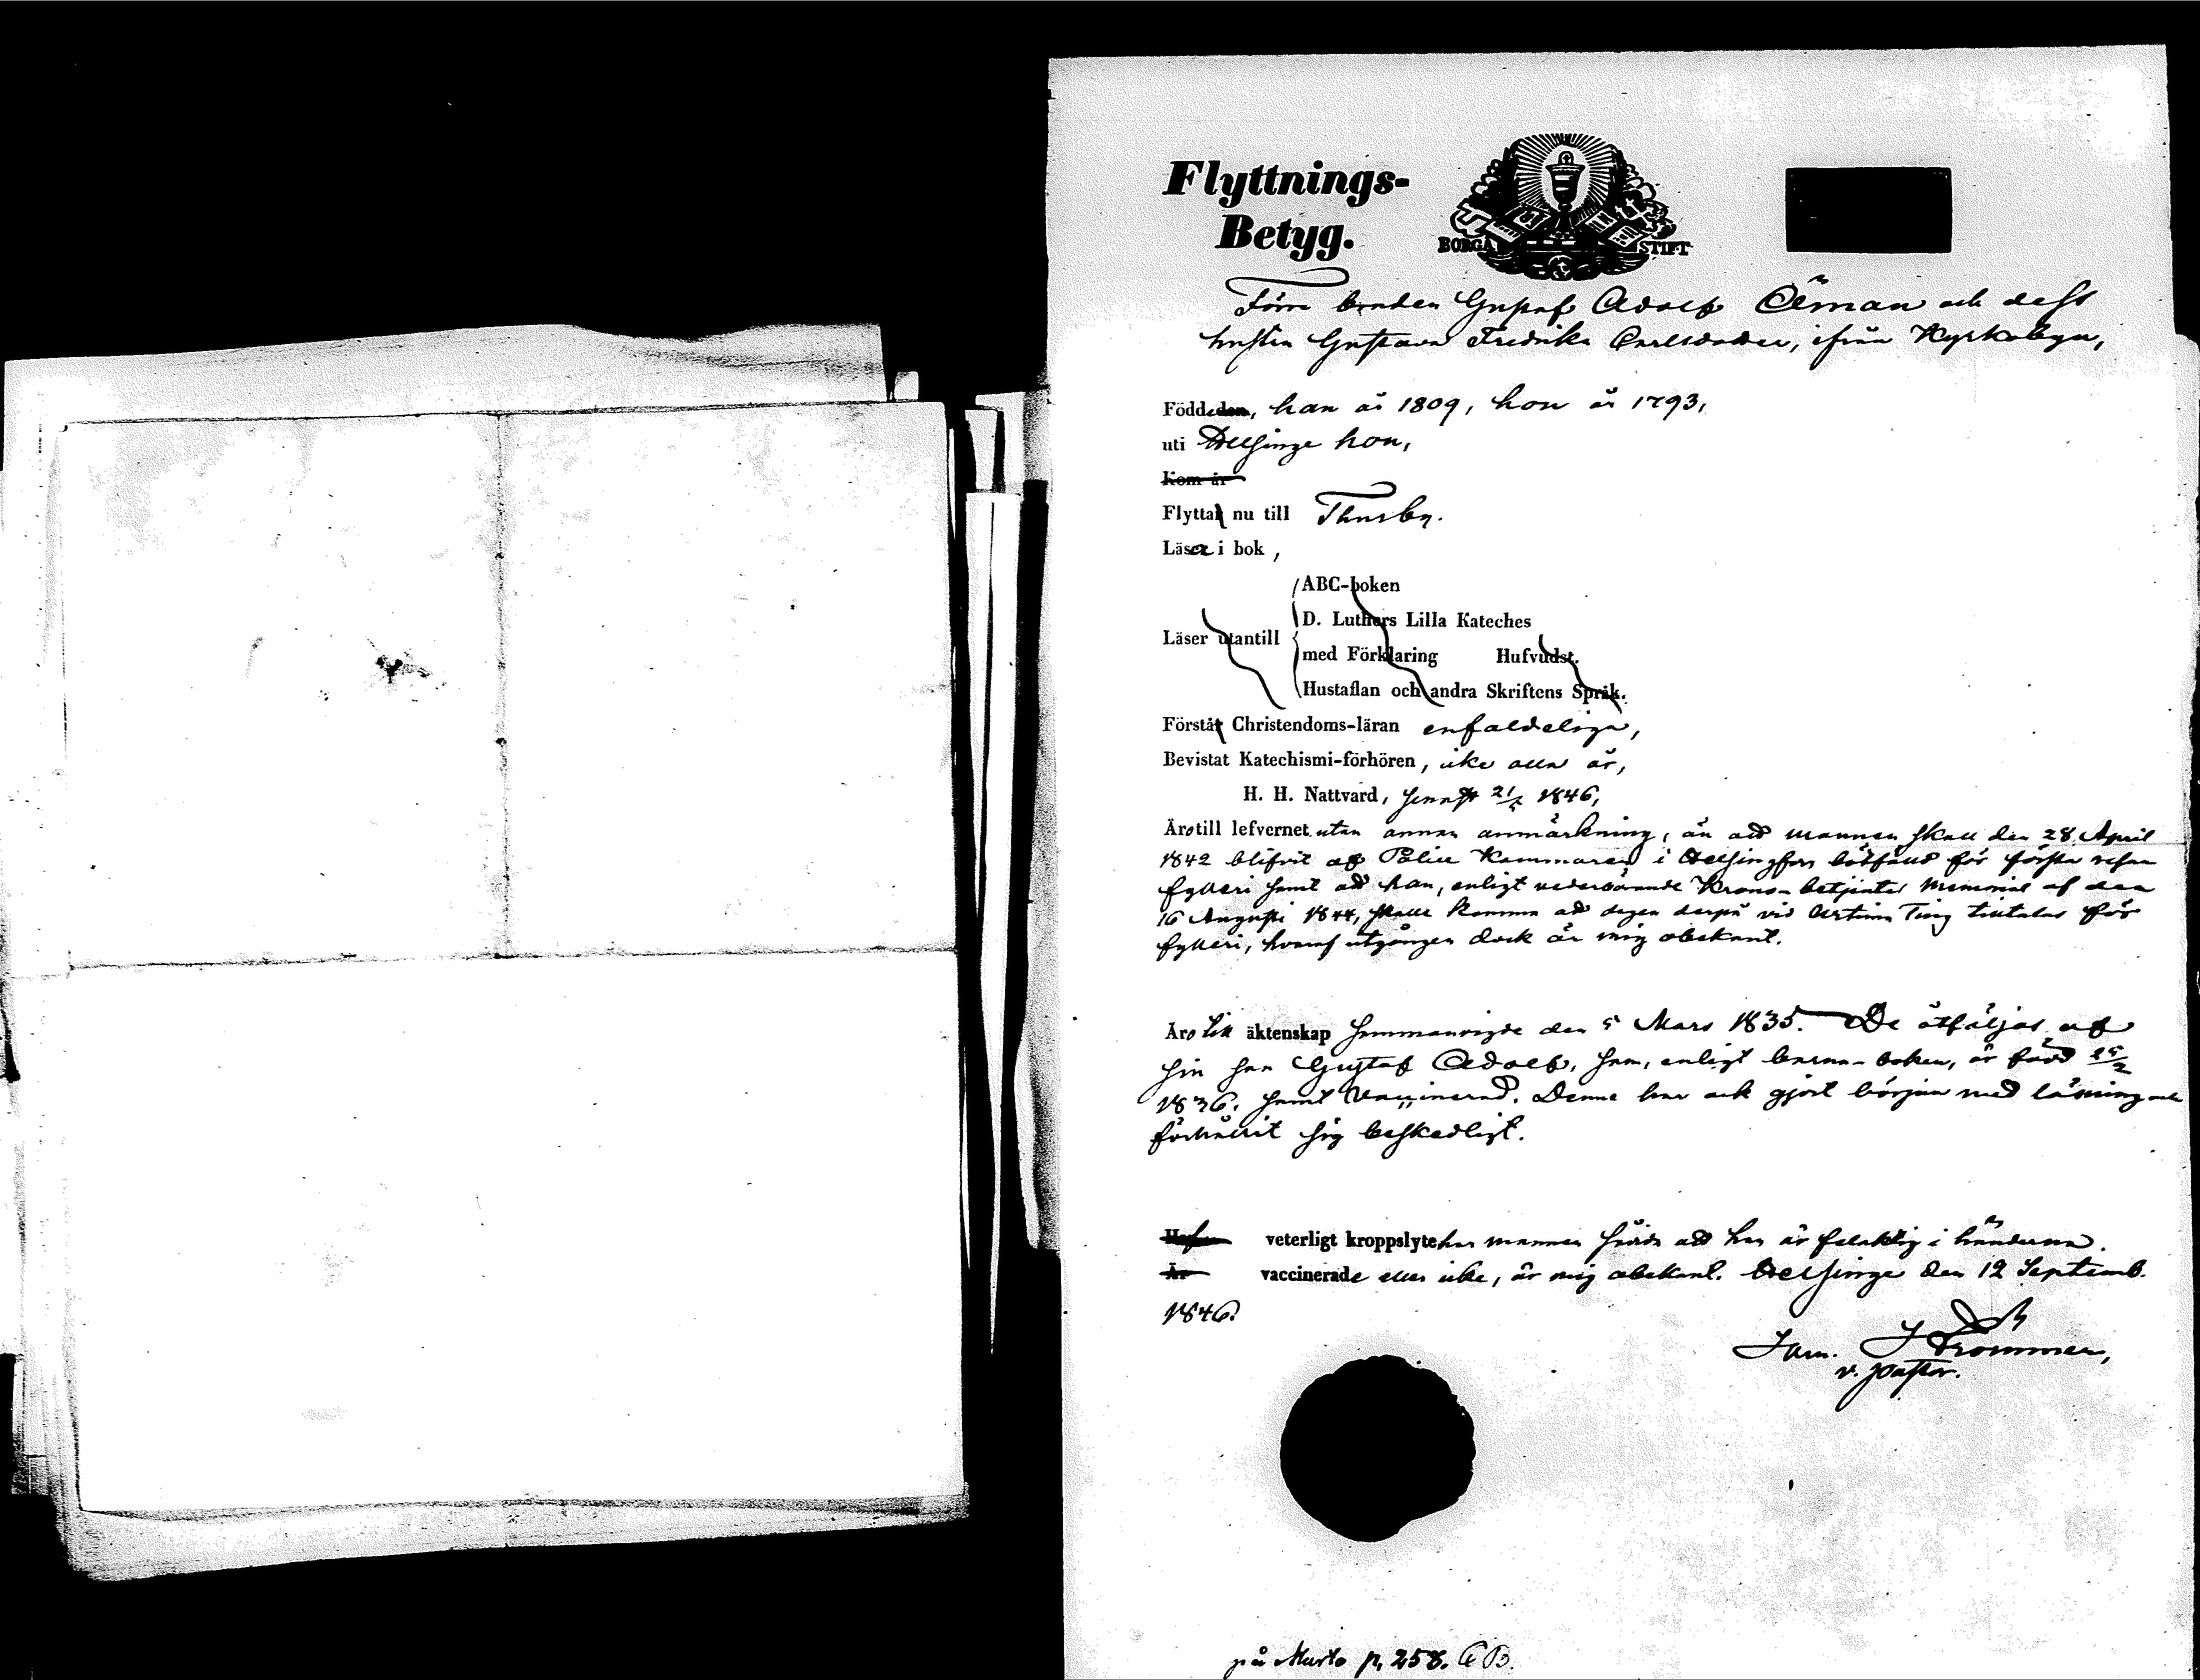 Flyttnings-
Betyg.
BORGÅ STIFT
Förre bonden Gustaf Adolf Öman och dess
hustru Gustava Fredrika Carlsdotter, ifrån Kyrkobyn,
Född den, han år 1809, hon år 1793,
uti Helsinge hon,
Kom år
Flyttar nu till Thusby.
Läser i bok,
ABC-boken
D. Luthers Lilla Kateches
Läser utantill
med Förklaring Hufvudst.
Hustaflan och andra Skriftens Språk.
Förstår Christendoms-läran enfaldeliga,
Bevistat Katechismi-förhören, icke alla år,
H. H. Nattvard, senast 1846,
Äro till lefvernet utan annan anmärkning, än att mannen skall den 28 April
1842 blifvit af Police Kammaren i Helsingfors bötfäld för första resan
fylleri samt att han, enligt vederbörande Krono-betjentes Memorial af den
16 Augusti 1844, skulle komma att dagen derpå vid Ting tilltalas för
fylleri, hvaraf utgången dock är mig obekant.
Äro till äktenskap sammanvigde den 5 Mars 1835. De åtföljas af
sin son Gustaf Adolf, som, enligt barna-boken, är född 25/2
1836, samt vaccinerad. Denne har ock gjort början med läsning och
förhållit sig beskedligt.
Hafva veterligt kroppslyte har mannen han är i händerna.
Är vaccinerade eller icke, är mig obekant. Helsinge den 12 Septemb.
1846.
v. pastor.
på p. 258. CB.